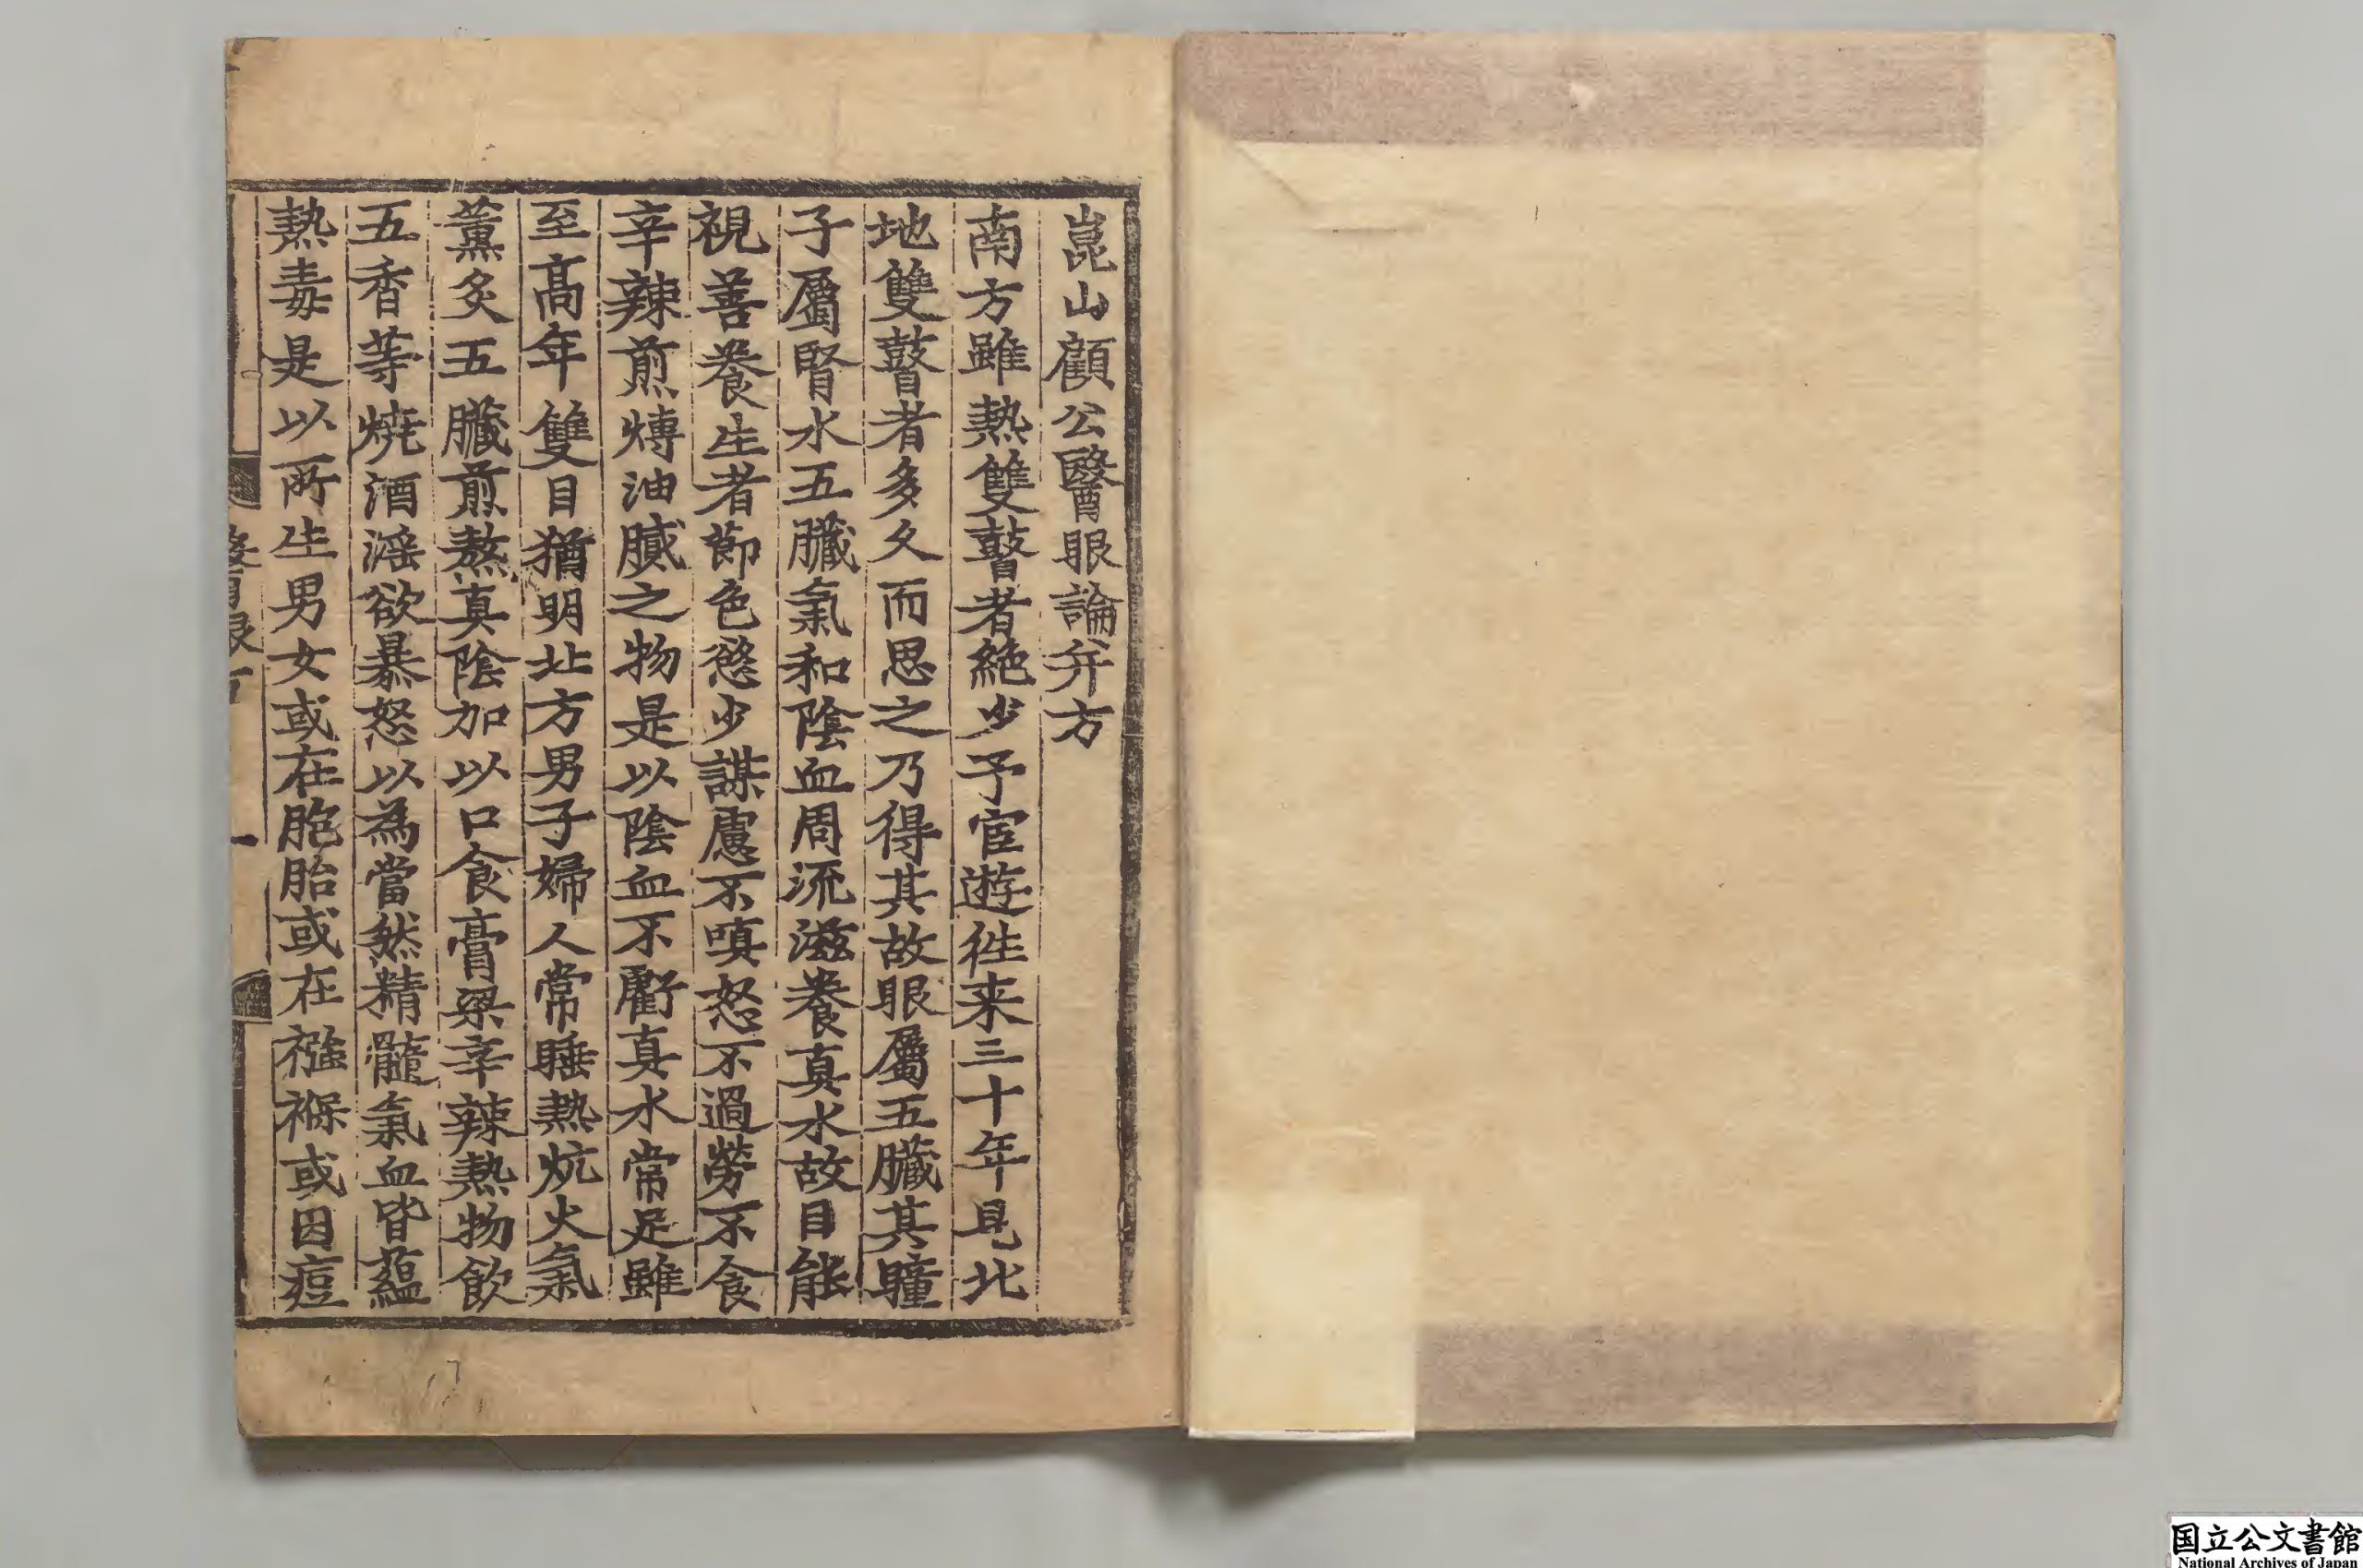 崑山顧公醫眼論并方
南方雖熱雙瞽者絶少予宦遊徃来三十年見北
地雙瞽者多久而思之乃得其故眼屬五臓其瞳
子屬腎水五臓氣和陰血周流滋養真水故目能
視善養生者節色慾少謀慮不嗔怒不過勞不食
辛辣煎煿油膩之物是以陰血不虧真水常足雖
至高年雙目猶明北方男子婦人常睡熱炕火氣
薰炙五臓煎熬真陰加以口食膏粱辛辣熱物飲
五香等燒酒滛欲暴怒以為當然精髓氣血皆蘊
熱毒是以所生男女或在胞胎或在襁褓或因痘
一
国立公文書館
National Archives of Japan